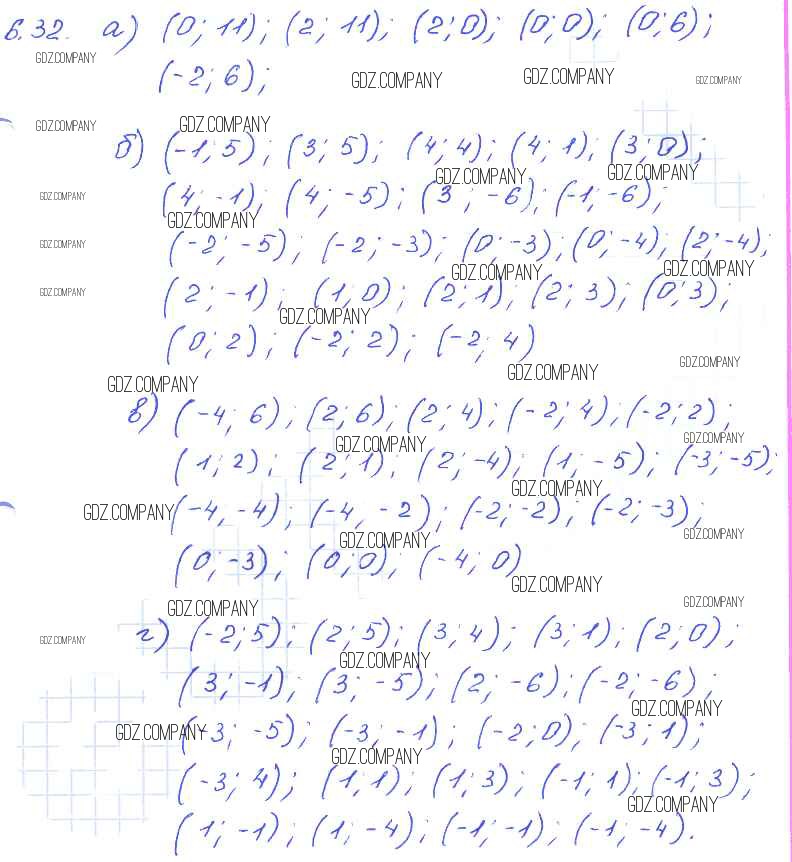 6.32. а) (0; 11); (2; 11); (2; 0); (0; 0); (0; 6);
GDZ.COMPANY
(-2; 6); GDZ.COMPANY GDZ.COMPANY GDZ.COMPANY
GDZ.COMPANY GDZ.COMPANY
б) (-1; 5); (3; 5); (4; 4); (4; 1); (3; 0);
GDZ.COMPANY GDZ.COMPANY
GDZ.COMPANY (4; -1); (4; -5); (3; -6); (-1; -6);
GDZ.COMPANY
GDZ.COMPANY (-2; -5); (-2; -3); (0; -3); (0; -4); (2; -4);
GDZ.COMPANY GDZ.COMPANY
GDZ.COMPANY (2; -1); (1; 0); (2; 1); (2; 3); (0; 3);
GDZ.COMPANY
(0; 2); (-2; 2); (-2; 4)
GDZ.COMPANY
GDZ.COMPANY GDZ.COMPANY
в) (-4; 6); (2; 6); (2; 4); (-2; 4); (-2; 2);
GDZ.COMPANY GDZ.COMPANY
(1; 2); (2; 1); (2; -4); (1; -5); (-3; -5);
GDZ.COMPANY
GDZ.COMPANY (-4, -4); (-4, -2); (-2; -2); (-2; -3);
GDZ.COMPANY GDZ.COMPANY
(0; -3); (0; 0); (-4; 0)
GDZ.COMPANY
GDZ.COMPANY GDZ.COMPANY
GDZ.COMPANY г) (-2; 5); (2; 5); (3; 4); (3; 1); (2; 0);
GDZ.COMPANY
(3; -1); (3; -5); (2; -6); (-2; -6);
GDZ.COMPANY
GDZ.COMPANY (-3; -5); (-3; -1); (-2; 0); (-3; 1);
GDZ.COMPANY
(-3; 4); (1; 1); (1; 3); (-1; 1); (-1; 3);
GDZ.COMPANY
(1; -1); (1; -4); (-1; -1); (-1; -4).